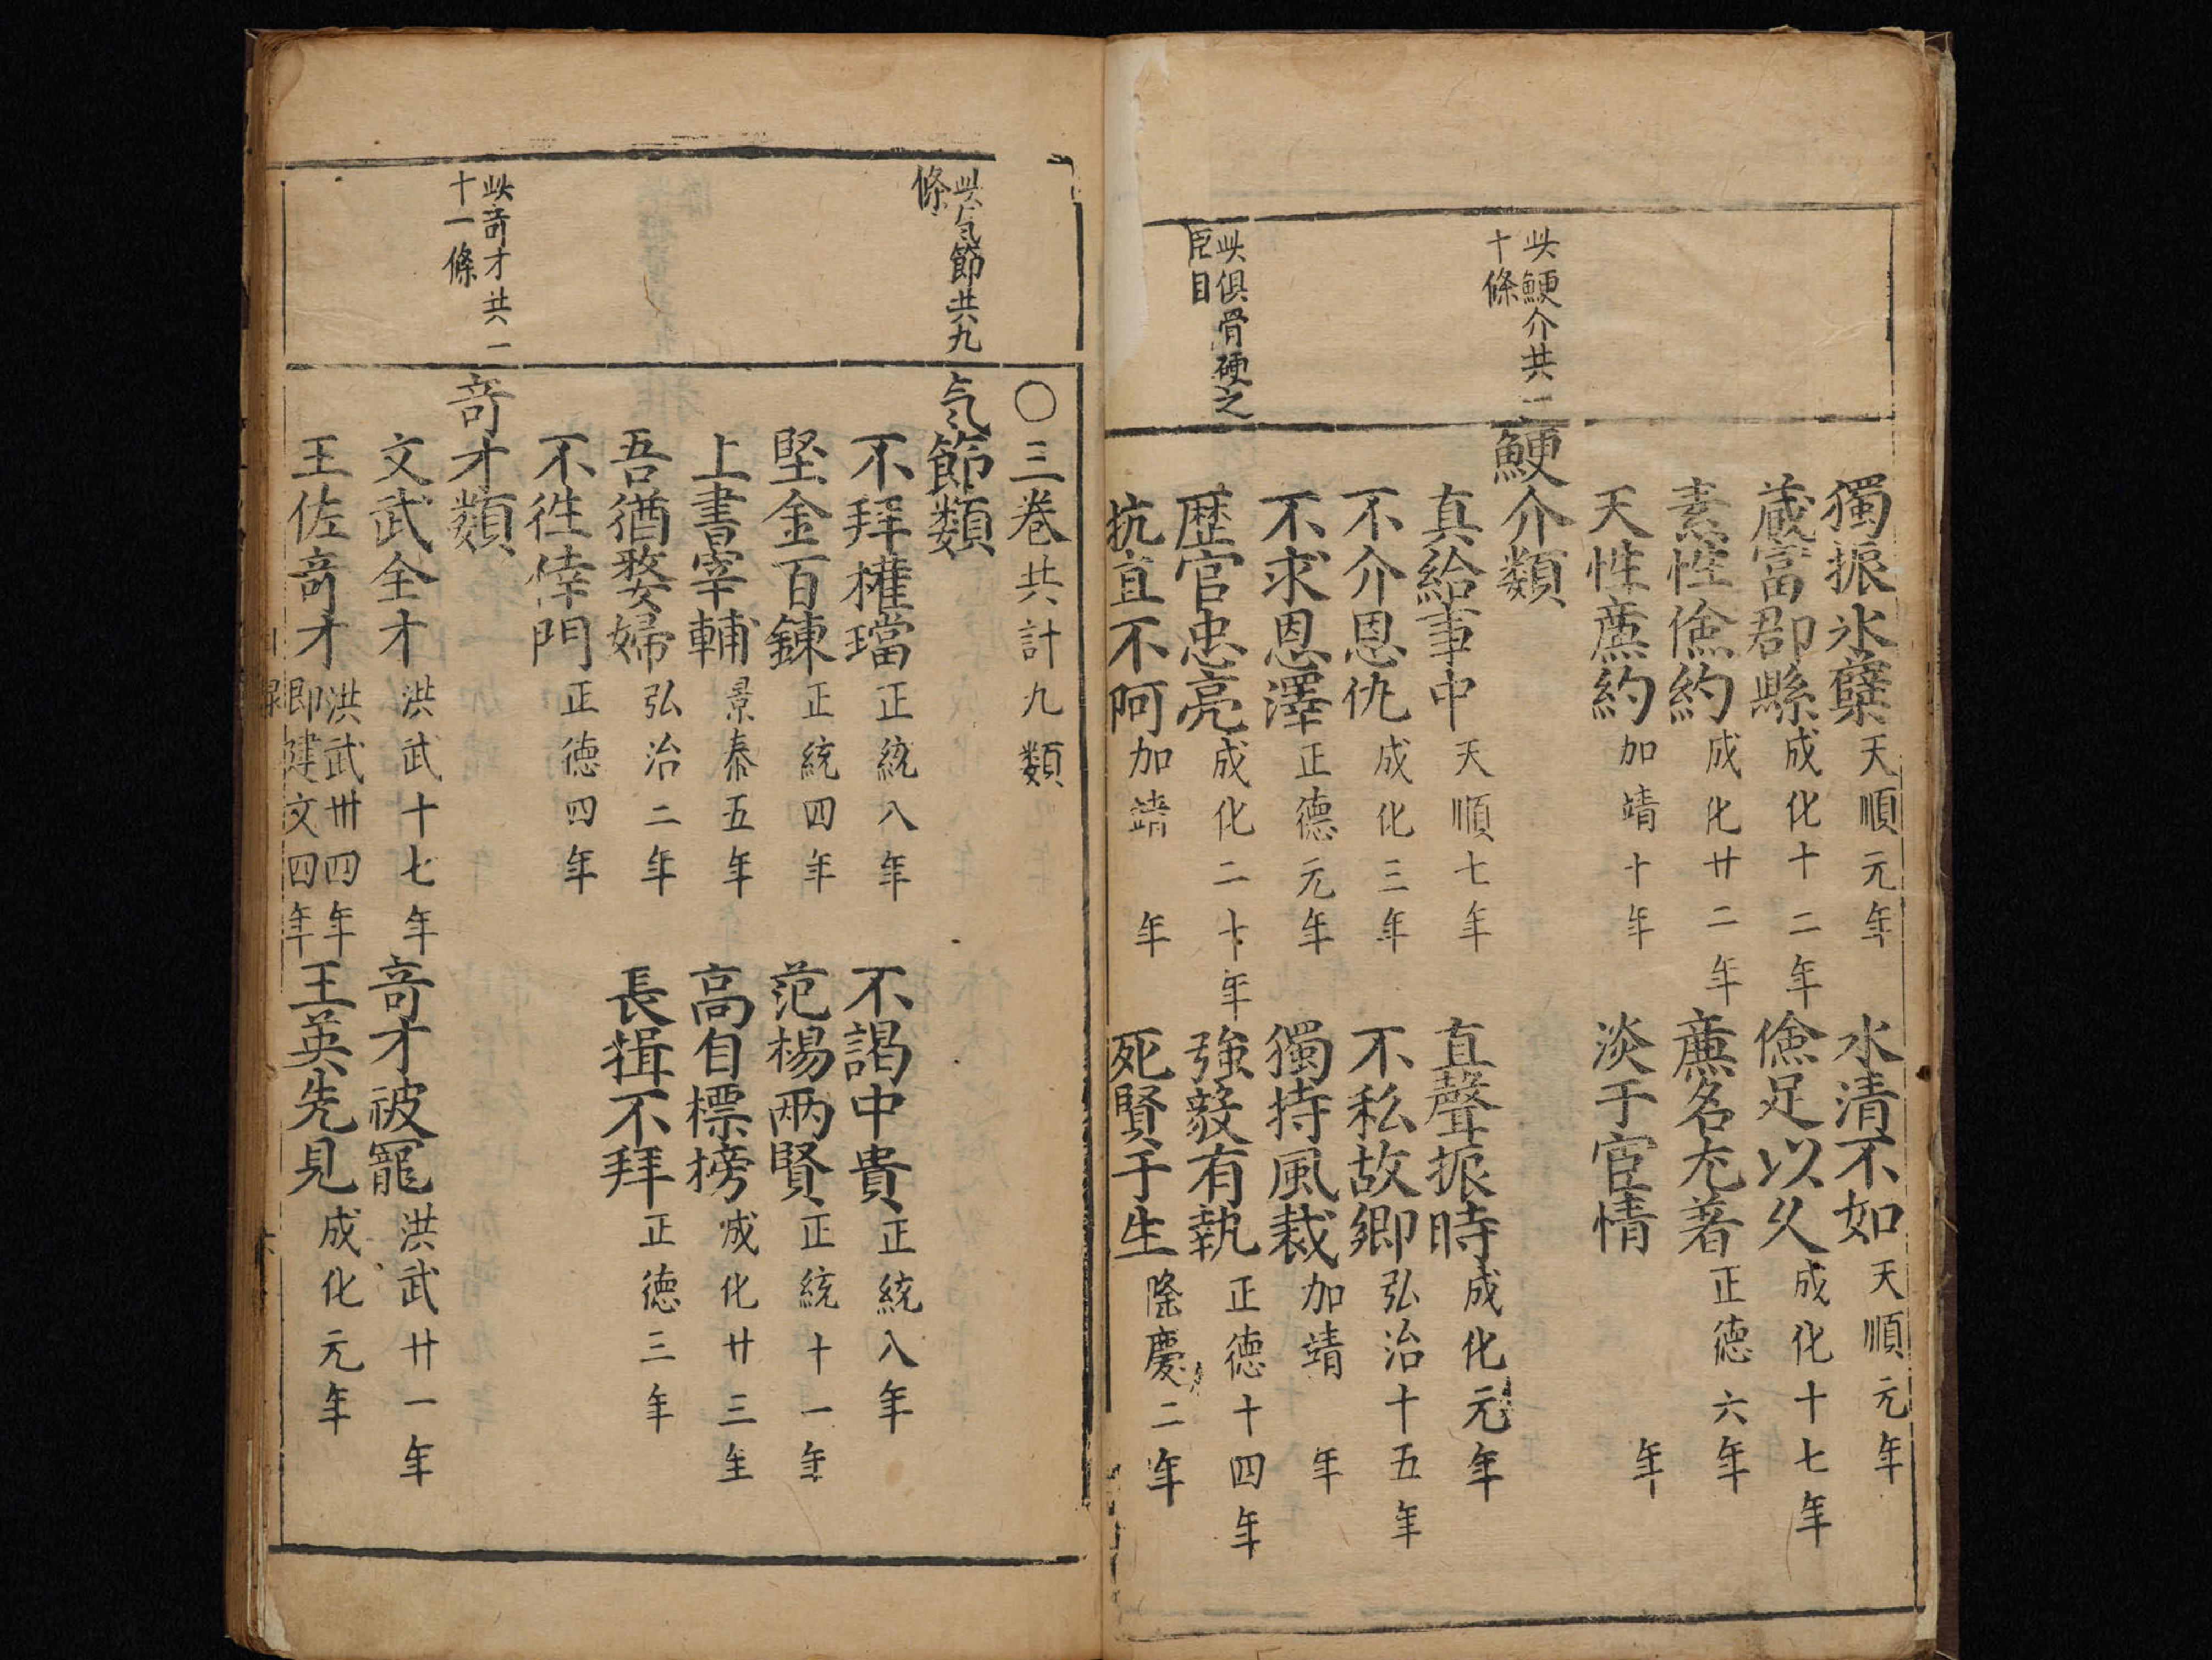 獨振氷蘗天順元年　水清不如天順元年
蔵富郡縣成化十二年　儉足以久成化十七年
素性儉約成化廿二年　廉名尤著正德六年
天性廉約加靖十年　淡于宦情　年
此鯁介共一
十條
鯁介類
真給事中天順七年　直聲振時成化元年
不介恩仇成化三年　不私故鄉弘治十五年
不求恩澤正德元年　獨持風裁加靖　年
此俱骨硬之
臣目
歷官忠亮成化二十年　強毅有執正德十四年
抗直不阿加靖　年　死賢于生隆慶二年
○三卷共計九類
此气節共九
條
气節類
不拜權璫正統八年　不謁中貴正統八年
堅金百鍊正統四年　范楊兩賢正統十一年
上書宰輔景泰五年　高自標榜成化廿三年
吾猶婺婦弘治二年　長揖不拜正德三年
不徃倖門正德四年
此竒才共一
十一條
竒才類
文武全才洪武十七年　竒才被寵洪武廿一年
王佐竒才洪武卅四年
即建文四年　王英先見成化元年